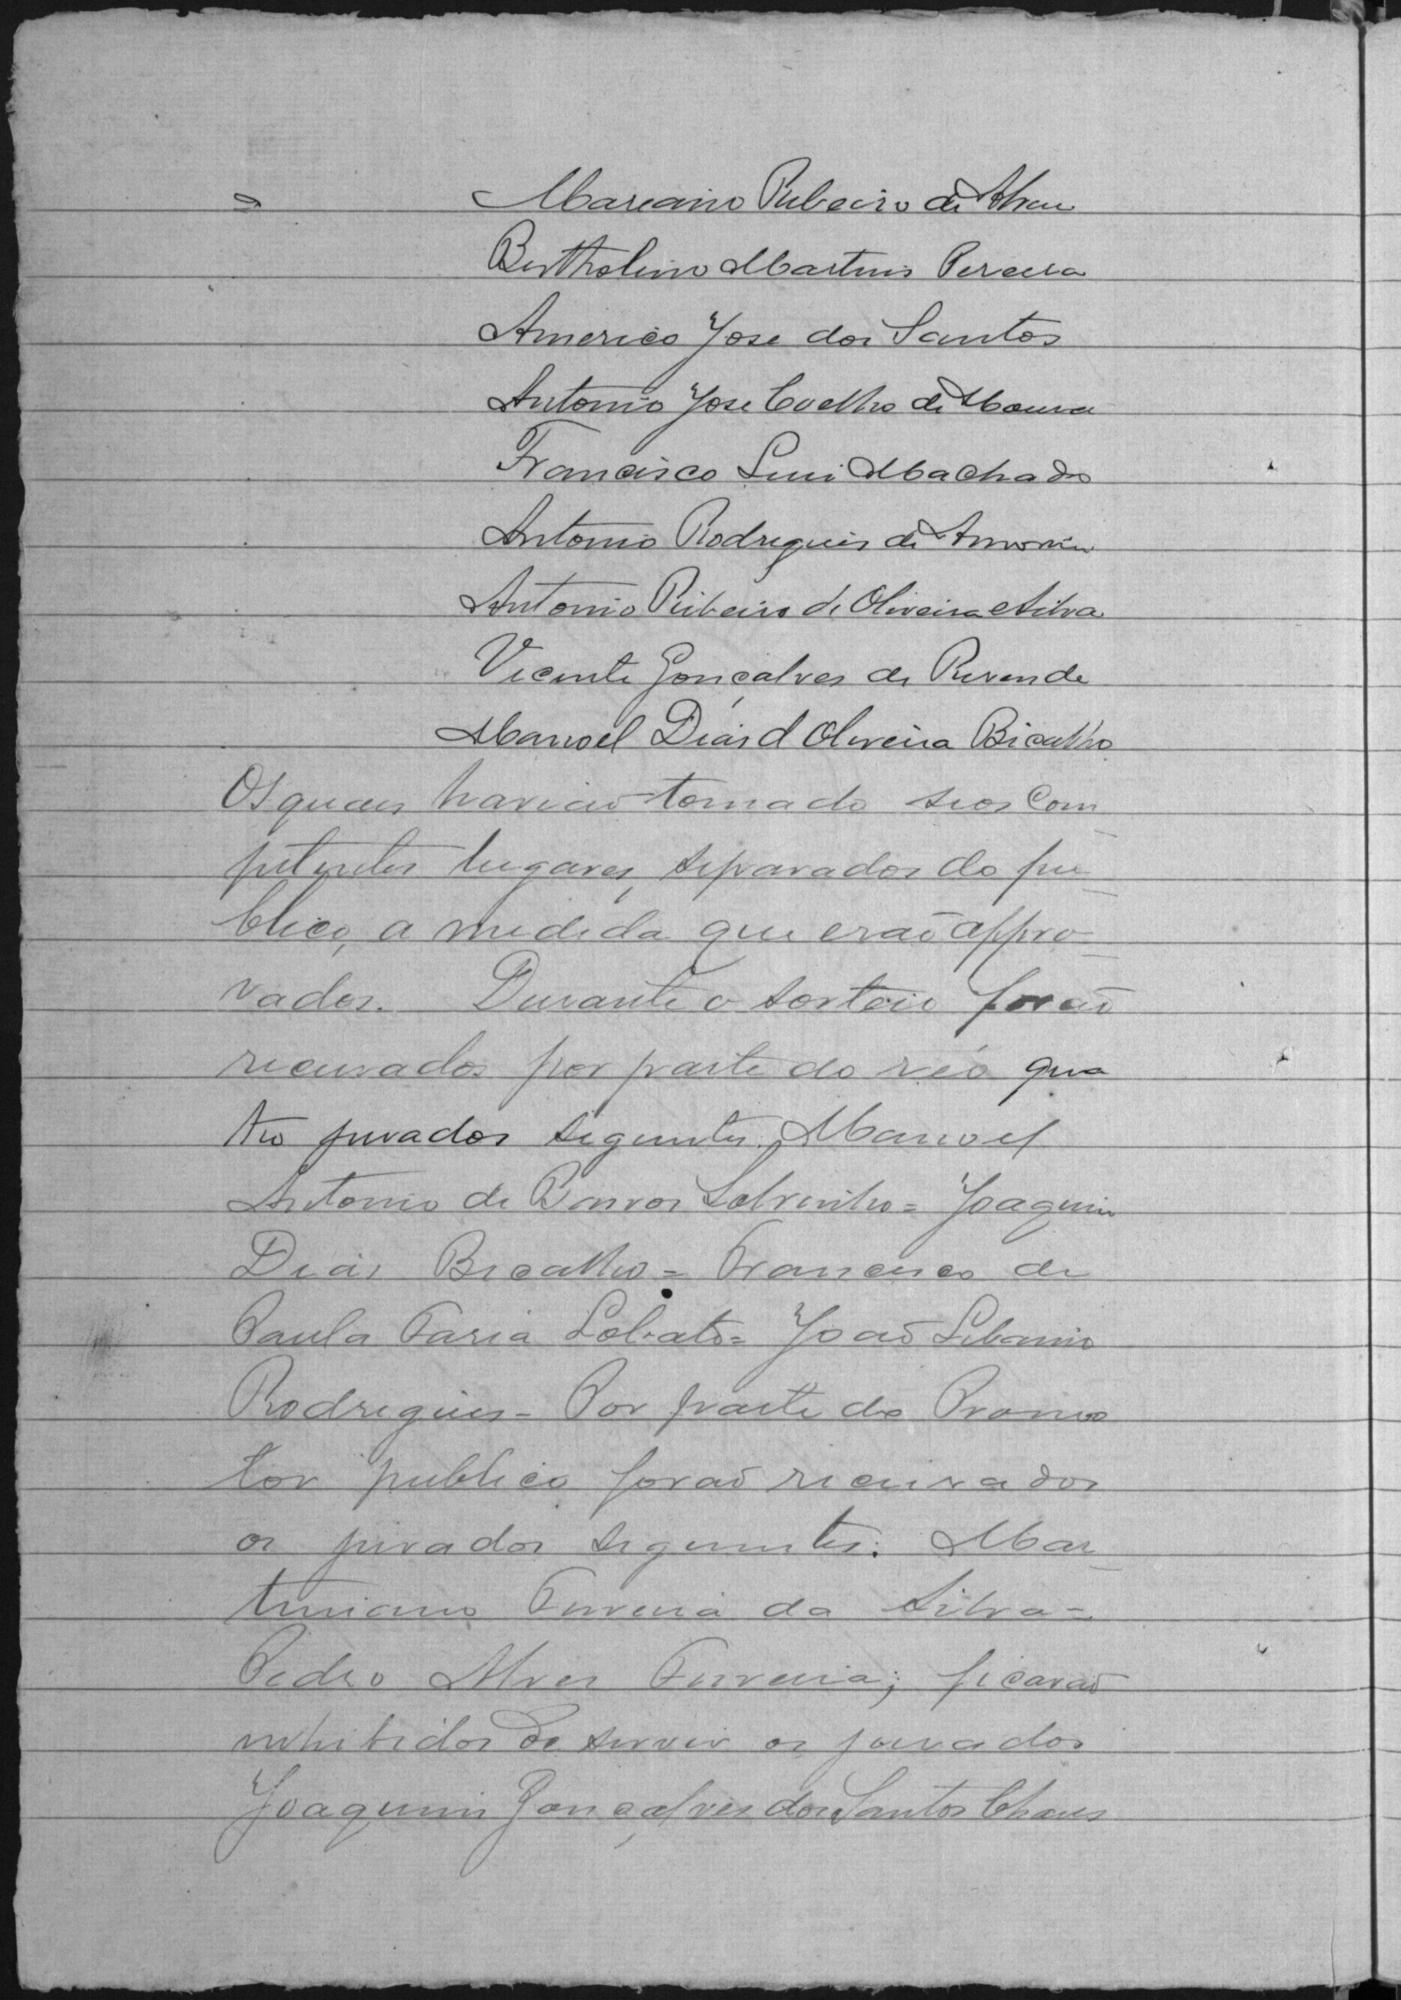 Marciano Ribeiro de Abreu
Bertholino Martins Pereira
Americo Jose dos Santos
Antonio Jose Coelho de Moura
Francisco Luis Machado
Antonio Rodrigues de Amorim
Antonio Ribeiro de Oliveira e Silva
Vicente Gonçalves de Resende
Manoel Dias d Oliveira Bicalho
Os quaes havião tomado seos com
petentes lugares, separados do pu
blico, a medida que erão appro
vados. Durante o sorteio forão
recusados por parte do réo qua
tro jurados seguintes. Manoel
Antonio de Barros Sobrinho = Joaquim
Dias Bicalho = Francisco de
Paula Faria Lobato = João Libanio
Rodrigues - Por parte do Promo
tor publico forão recusados
os jurados seguintes: Mar
tiniano Ferreira da Silva =
Pedro Alves Ferreira; ficarão
inhibidos de servir os jurados
Joaquim Gonçalves dos Santos Chaves